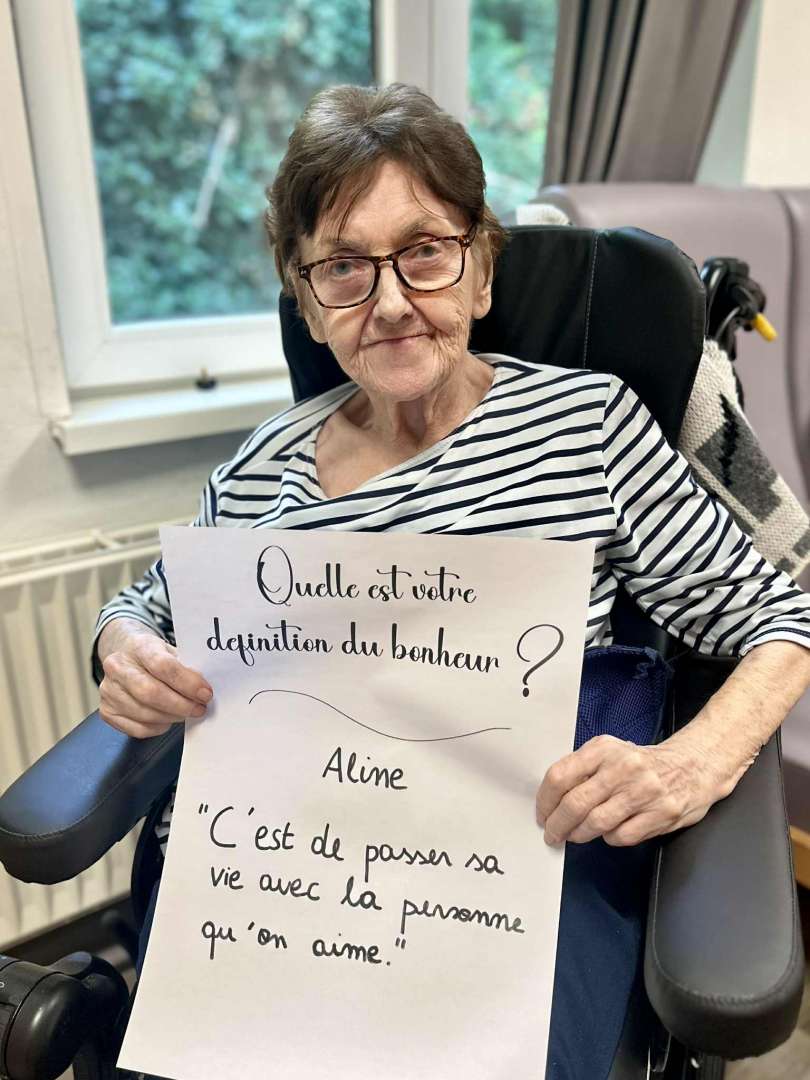 Quelle est votre
definition du bonheur ?
Aline
"C'est de passer sa
vie avec la personne
qu'on aime."